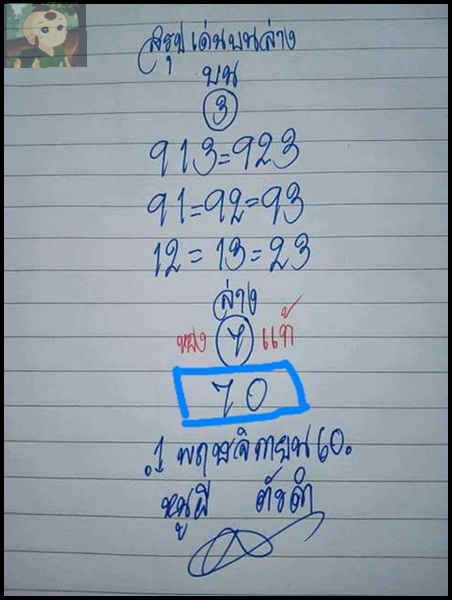 สรุปเด่นบนล่าง
บน
3
913=923
91=92=93
12=13=23
ล่าง
7 แท้
70
1 พฤศจิกายน 60.
หนูผี ตัวดำ